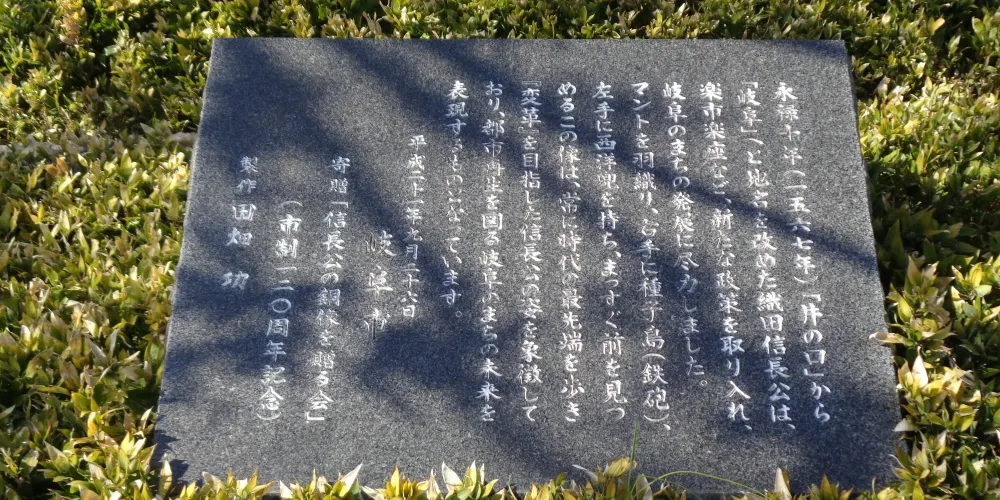 永禄十年(一五六七年)「井の口」から
「岐阜」へと地名を改めた織田信長公は、
楽市楽座など、新たな政策を取り入れ、
岐阜のまちの発展に尽力しました。
マントを羽織り、右手に種子島(鉄砲)、
左手に西洋兜を持ち、まっすぐ前を見つ
めるこの像は、常に時代の最先端を歩き
『変革』を目指した信長公の姿を象徴して
おり、都市再生を図る岐阜のまちの未来を
表現するものになっています。
平成二十一年七月二十六日
岐阜市
寄贈「信長公の銅像を贈る会」
(市制一二〇周年記念)
製作 国畑 功